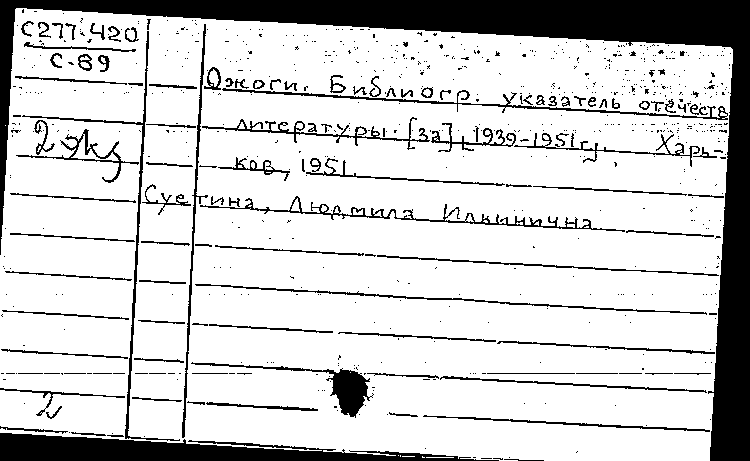 С277.420
С-89
Ожоги. Библиогр. указатель отечеств
2 экз
литературы. [за] [1939-1951гг]. Харь-
ков, 1951.
Суетина, Людмила Ильинична
2